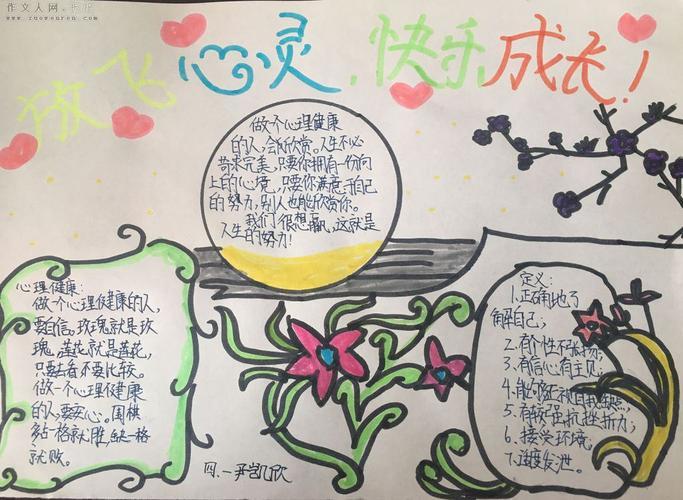 作文人网
www.zuowenren.com
放飞心灵,快乐成长!
做一个心理健康
的人,会欣赏。人生不必
苛求完美,只要你拥有一份向
上的心境,只要你满意于自己
的努力,别人也能欣赏你。
我们很想赢,这就是
人生的努力!
心理健康:
做一个心理健康的人,
要自信,玫瑰就是玫
瑰,莲花就是莲花,
只要去看不要比较。
做一个心理健康
的人要安心。围棋
多占一格就胜,缺一格
就败。
定义:
1.正确地了
解自己;
2.有个性不张扬;
3.有信心有主见;
4.能够正视自我缺点;
5.有较强抗挫折力;
6.接受环境;
7.适度发泄。
四、一尹凯欣